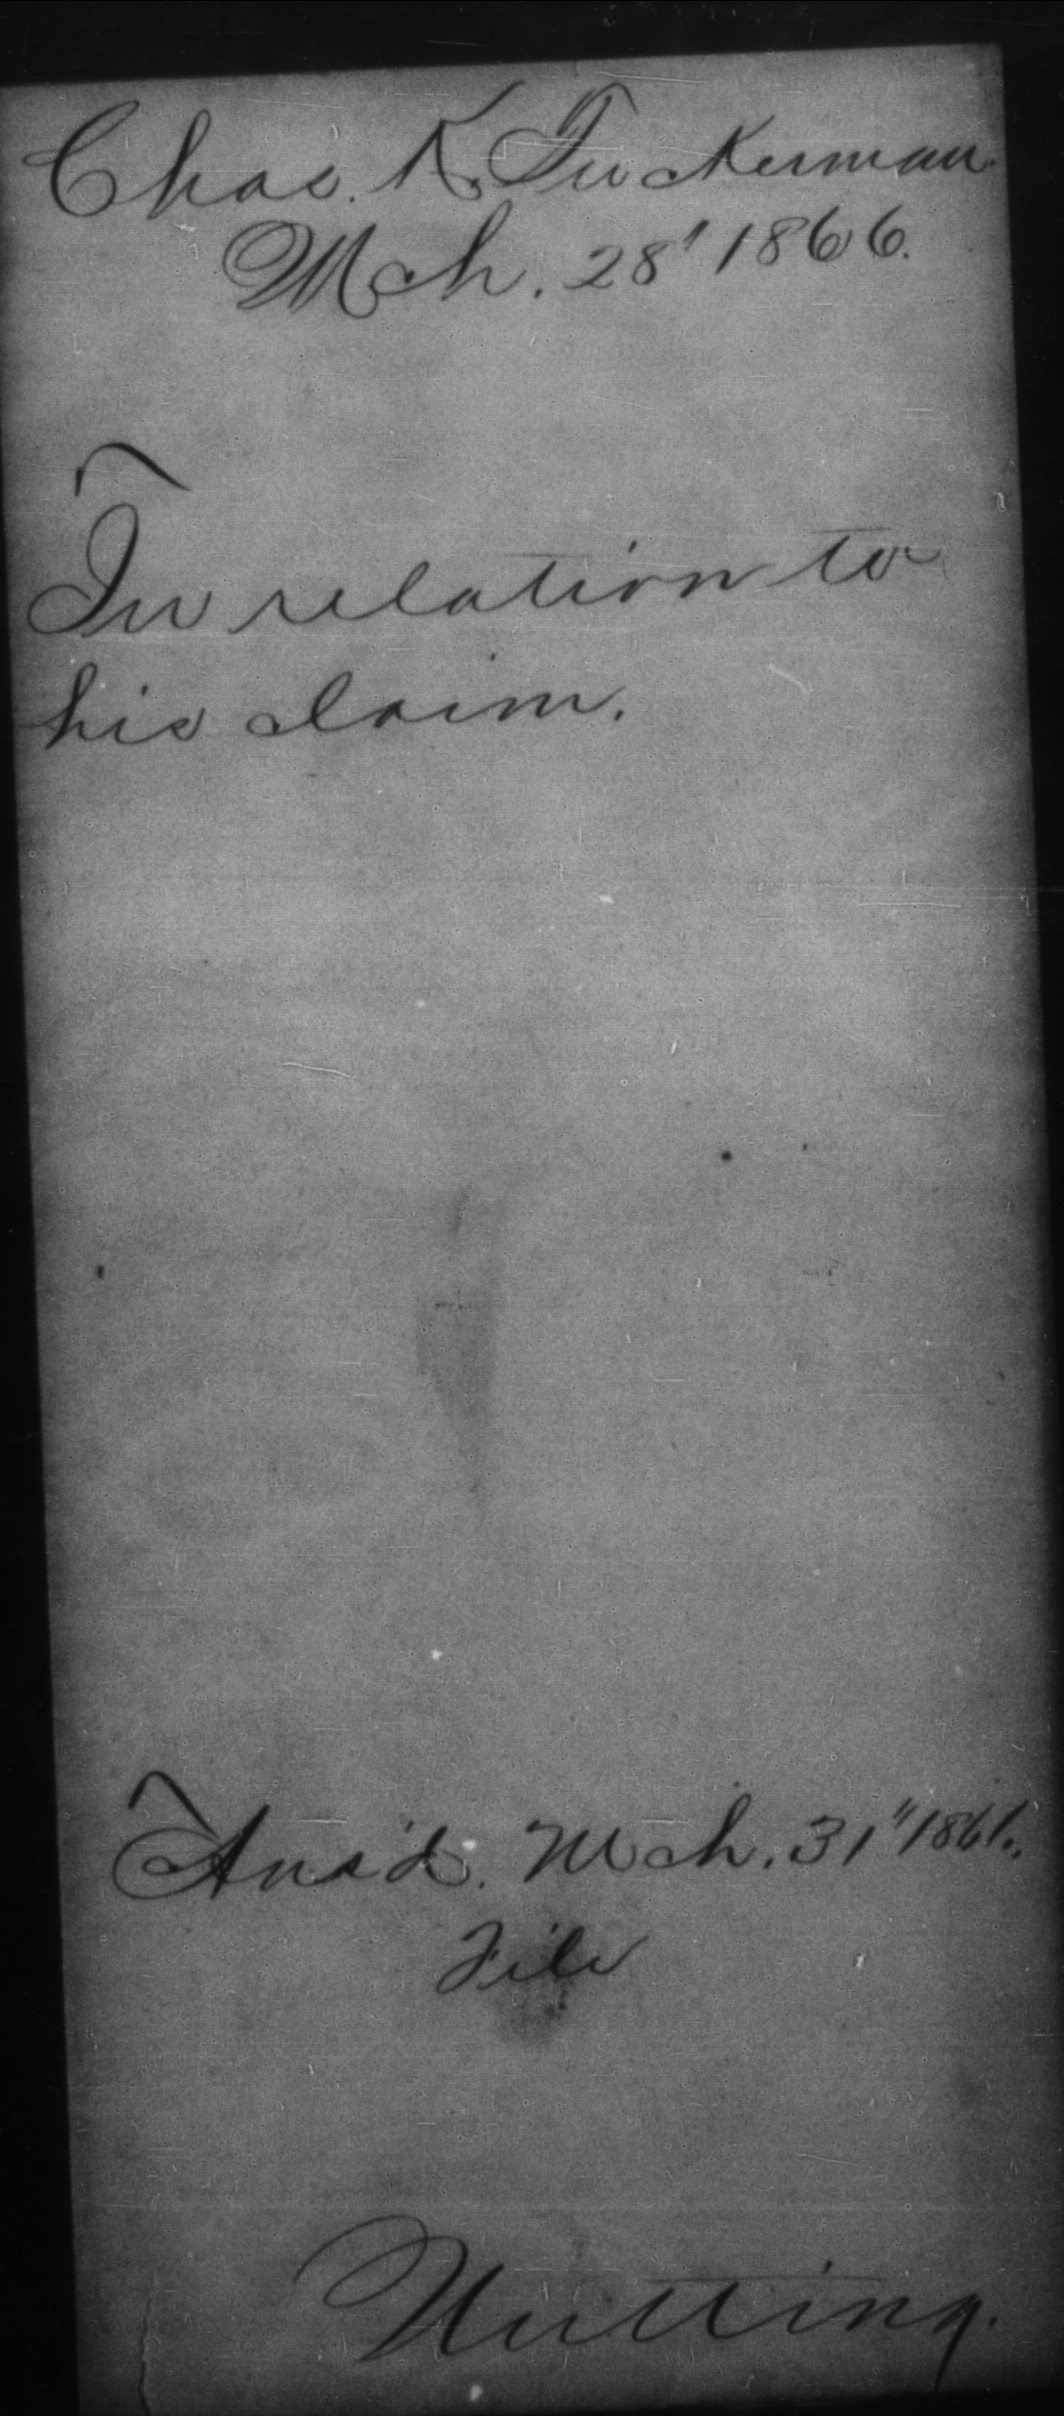 Chas. K. Tuckerman.
Mch. 28' 1866.
In relation to
his claim.
Ans'd. Mch. 31" 1866.
File
Nutting.